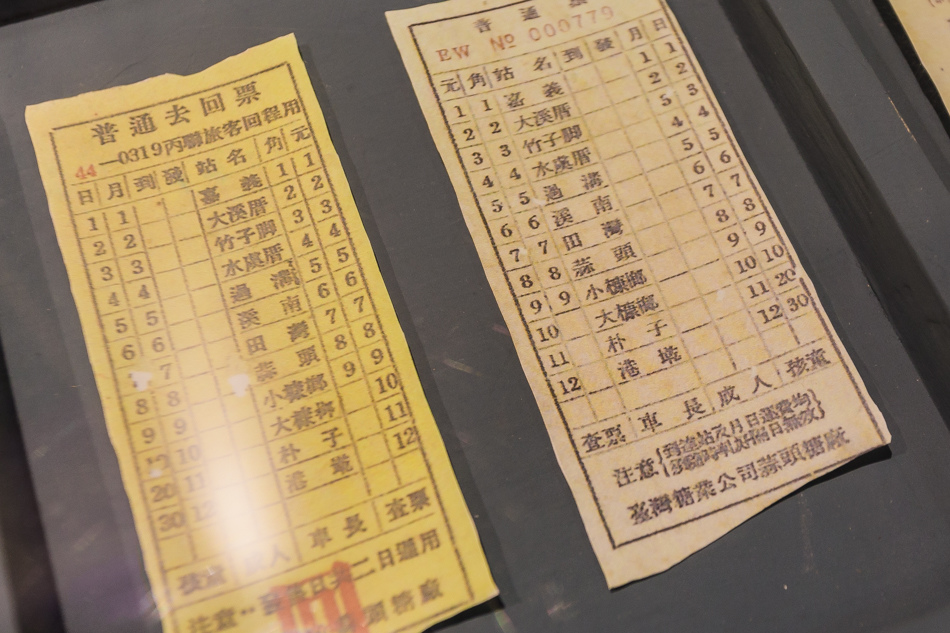 普通去回票
44—0319內聯旅客回程用
日 月 到 發 站名 角 元
1 1 嘉義 1 1
2 2 大溪厝 2 2
3 3 竹子脚 3 3
4 4 水虞厝 4 4
5 5 過溝 5 5
6 6 溪南 6 6
7 田灣 7 7
8 8 蒜頭 8 8
9 9 小槺榔 9 9
10 大槺榔 10
20 11 朴子 11
30 12 港墘 12
車長 查票
二日通用
頭糖廠
普通
EW № 000779
元 角 站名 到 發 月 日
1 1 嘉義 1 1
2 2 大溪厝 2 2
3 3 竹子脚 3 3
4 4 水虞厝 4 4
5 5 過溝 5 5
6 6 溪南 6 6
7 7 田灣 7 7
8 8 蒜頭 8 8
9 9 小槺榔 9 9
10 大槺榔 10 10
11 朴子 11 20
12 港墘 12 30
查票 車長 成人 孩童
注意
臺灣糖業公司蒜頭糖廠